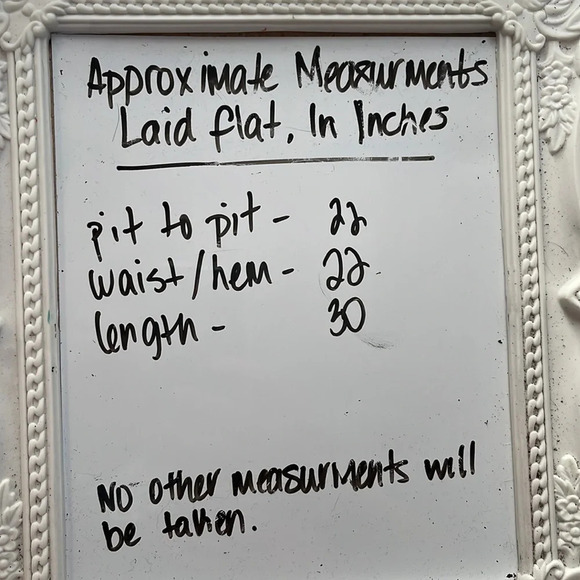 Approximate Measurments
Laid flat, In Inches
pit to pit - 22
waist/hem - 22
length - 30
No other measurments will
be taken.